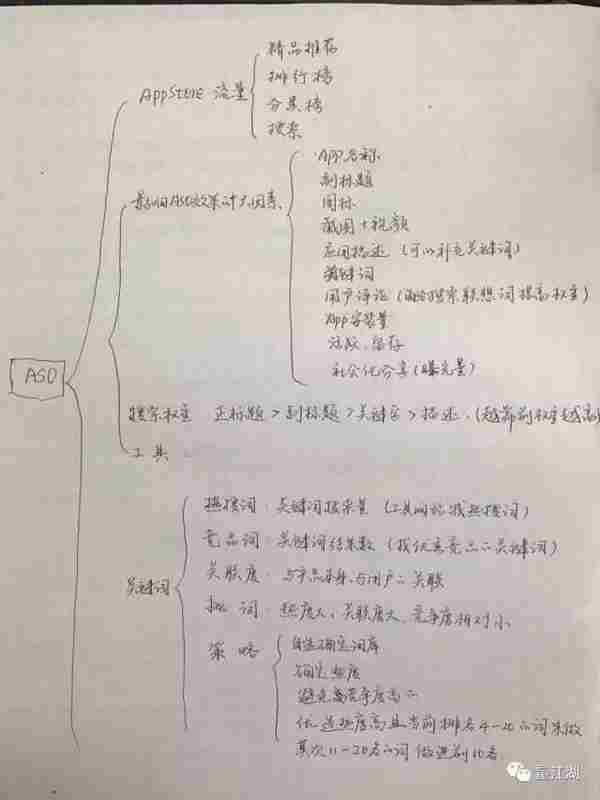 精品推荐
AppStore 流量
排行榜
分类榜
搜索
影响ASO效果的十大因素
App名称
副标题
图标
截图+视频
应用描述 (可以补充关键词)
关键词
用户评论 (搜索联想词提高权重)
App安装量
活跃、留存
社会化分享(曝光量)
ASO
搜索权重 正标题>副标题>关键字>描述 (越靠前权重越高
工具
热搜词:关键词搜索量 (工具网站找热搜词)
竞品词:关键词结果数 (找优秀竞品的关键词)
关键词
关联度:与产品本身、与用户的关联
拟词:热度大、关联度大、竞争度相对小
策略
筛选确定词库
确定热度
避免竞争度高的
优选热度高且当前排名4-20的词来做
其次11-20名的词 做进前10名